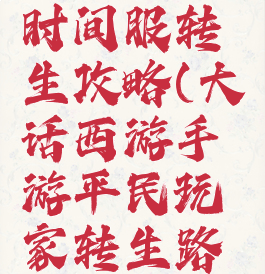 时间服转
生攻略(大
话西游手
游平民玩
家转生路